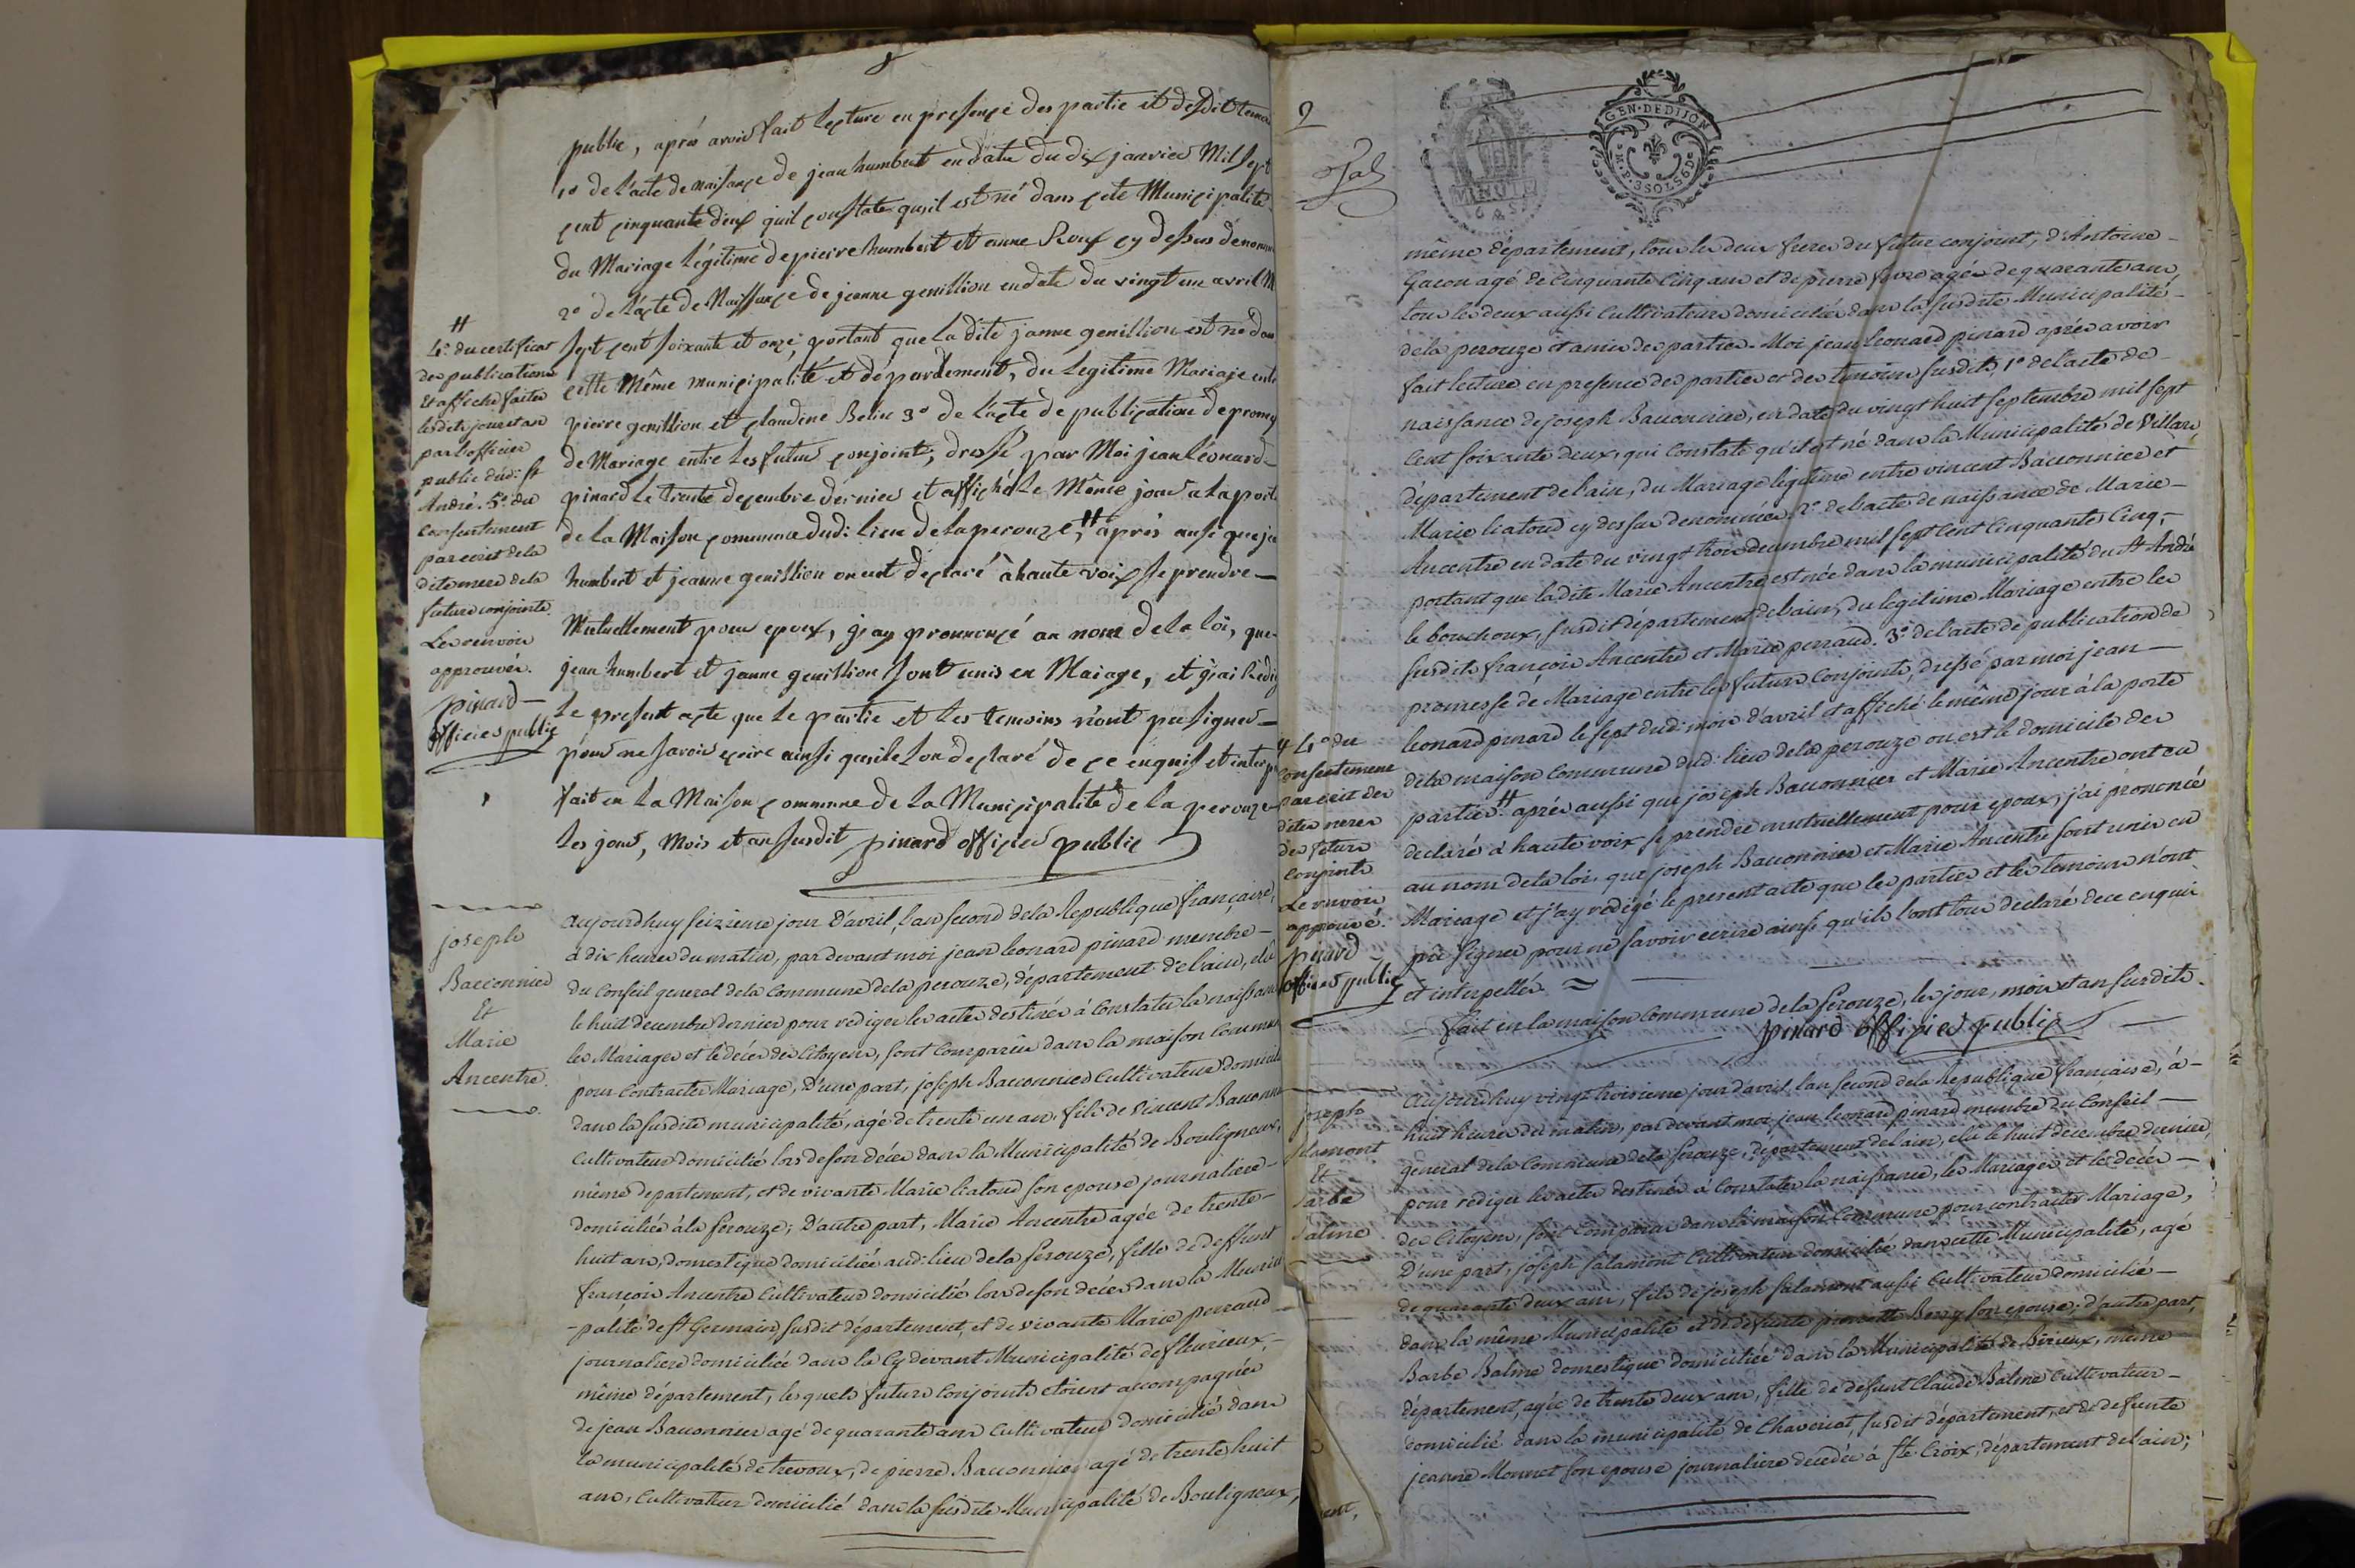 public, après avoir fait lecture en presençe des partie et desdit temoi
1º de l'acte de naisançe de jean humbert en date du dix janvier Mil Sept
çent çinquante deux quil constate quil est né dans çete Muniçipalité
du Mariage légitime de pierre humbert et anne Roux çy desus dénomm
2º de l'açte de Naissançe de jeanne genillion en date du vingt un avril M
Sept çent soixante et onze, portant que la dite janne genillion est né dan
cette Même muniçipalité et département, du légitime Mariaje entr
pierre genillion et claudine Belin 3º de l'açte de publication de prom
de Mariage entre les futur conjoint, dressé par Moi jean Léonard
pinard le trente deçembre dérnier et affiché le Même jour a la porte
de la Maison commune dud: lieu de la perouze,# après ausi que je
humbert et jeanne genillion on eut déçlaré à haute voix se prendre
Mutuellement pour epoux, j'ay prononçé au nom de la loi, que
jean humbert et janne genillion sont unis en Mariage, et j'ai redig
Le present açte que le partie et les temoins n'ont pu signer
pour ne savoir eçrire ainsi quils lon déçlaré de çe enquis et interp
fait en la Maison commune de la Muniçipalité de la perouze
les jour, Mois et an susdit pinard offiçier publiç
#
4º. du certificat
des publications
et affiche faites
lesdits jour et an
par l'officier
public dud: St
André. 5º. du
consentement
par ecrit de la
dite mere de la
future conjointe.
Les renvois
approuvés.
pinard
offiçier publiç
joseph
Bacconnier
Et
Marie
Ancentre.
aujourd'huy seizieme jour d'avril, l'an second de la Republique française,
à dix heures du matin, par devant moi jean leonard pinard membre
du Conseil general de la Commune de la perouze, département de l'ain, élu
le huit decembre dernier pour rediger les actes destinés à Constater la naissance
les Mariages et le décès des Citoyens, sont Comparus dans la maison Commune
pour Contracter Mariage, D'une part, joseph Bacconnier Cultivateur domicilié
dans la susdite municipalité, agé de trente un ans, fils de Vincent Bacconnier
Cultivateur domicilié lors de son décès dans la Municipalité de Bouligneux,
même departement, et de vivante Marie liatoud son epouse journaliere
domiciliée à la Perouze; D'autre part, Marie Ancentre agée de trente
huit ans, domestique domiciliée aud: lieu de la Perouze, fille de deffunt
françois Ancentre Cultivateur domicilié lors de son décès dans la Munici
-palité de St Germain susdit département, et de vivante Marie perraud
journaliere domiciliée dans la Cy devant Municipalité de fleurieux,
même département, les quels futurs Conjoints étoient accompagnés
de jean Bacconnier agé de quarante ans Cultivateur domicilié dans
la municipalité de trevoux, de pierre Bacconnier agé de trente huit
ans, Cultivateur domicilié dans la susdite Municipalité de Bouligneux,
2
GEN·DEDIJON
3 SOLS 6 De
même département, tous les deux freres du futur conjoint, d'Antoine
Gacon agé de Cinquante Cinq ans et de pierre favre agé de quarante ans,
tous les deux aussi Cultivateurs domiciliés dans la susdite Municipalité
de la perouze et amis des parties. Moi jean leonard pinard après avoir
fait lecture en presence des parties et des temoins susdits, 1º de l'acte de
naissance de joseph Bacconnier, en date du vingt huit septembre mil sept
Cent soixante deux, qui Constate qu'il est né dans la Municipalité de Villars
département de l'ain, du Mariage légitime entre vincent Bacconnier et
Marie liatoud cy dessus denommés. 2º de l'acte de naissance de Marie
Ancentre en date du vingt trois decembre mil sept Cent Cinquante Cinq,
portant que ladite Marie Ancentre est née dans la municipalité du St André
le bouchoux, susdit département de l'ain, du legitime Mariage entre les
susdits françois Ancentre et Marie perraud. 3º de l'acte de publication de
promesse de Mariage entre les futurs Conjoints, dressé par moi jean
leonard pinard le sept dud: mois d'avril et affiché le même jour à la porte
de la maison Commune dud: lieu de la perouze ou est le domicile des
parties.# après aussi que joseph Bacconnier et Marie Ancentre ont eu
declarés à haute voix se prendre mutuellement pour epoux, j'ai prononcé
au nom de la loi, que joseph Bacconnier et Marie Ancentre sont unis en
Mariage et j'ay redigé le present acte que les parties et les temoins n'ont
pû signer pour ne savoir ecrire ainsi qu'ils l'ont tous declaré de ce enquis
et interpellés.
Fait en la maison Commune de la Perouze, les jour, mois et an susdits.
pinard offiçier publiç
# 4º du
consentement
par ecrit des
dites meres
des futurs
conjoints
Le renvoi
approuvé.
pinard
offiçier publiç
joseph
Salamont
Et
Barbe
Balme
aujourd'huy vingt troisieme jour d'avril, l'an second de la Republique française, à
huit heures du matin, par devant moi jean leonard pinard membre du Conseil
general de la Commune de la Perouze, département de l'ain, élu le huit decembre dernier,
pour rediger les actes destinés à Constater la naissance, les Mariages et les décès
des Citoyens, sont Comparus dans la maison Commune pour contracter Mariage,
D'une part, joseph Salamont Cultivateur domicilié dans cette Municipalité, agé
de quarante deux ans, fils de joseph Salamont aussi Cultivateur domicilié
dans la même Municipalité et de defunte pierrette Berry son epouse; d'autre part,
Barbe Balme domestique domiciliée dans la Municipalité de Birieux, même
département, agée de trente deux ans, fille de defunt Claude Balme Cultivateur
domicilié dans la municipalité de Chaveriat, susdit département, et de defunte
jeanne Monnet son epouse journaliere decedée à Ste Croix, département de l'ain;